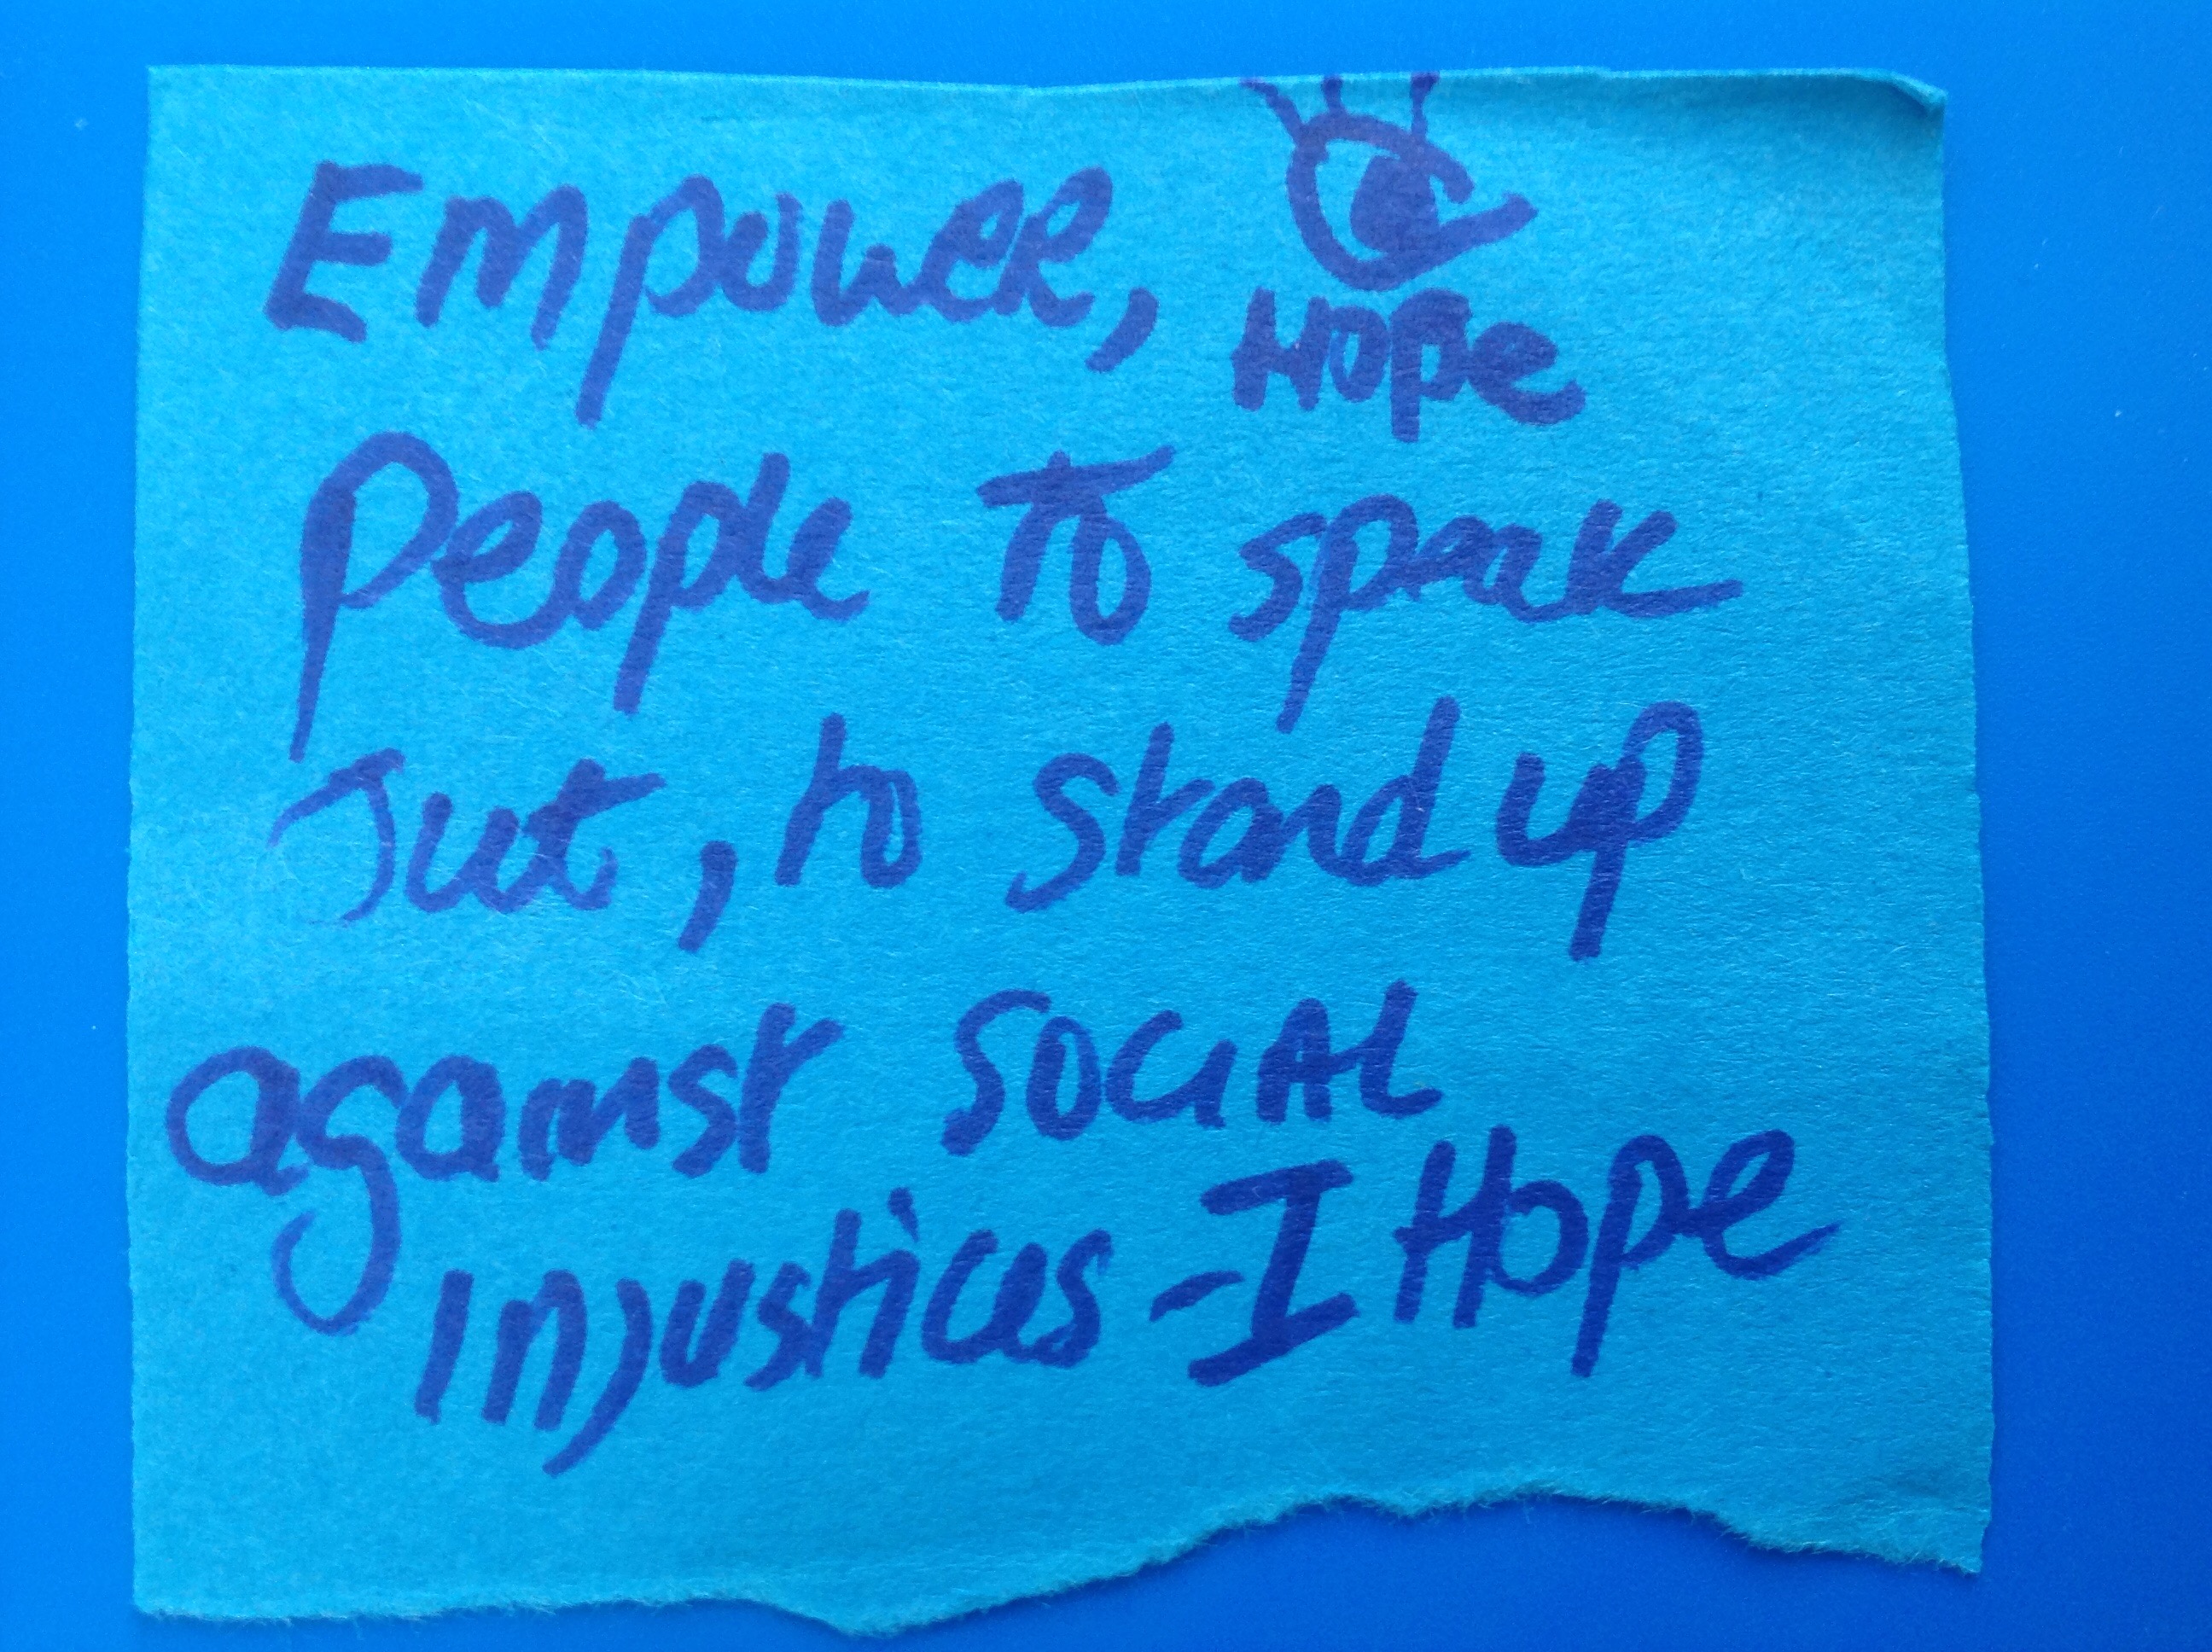 Empower,
Hope
People to speak
out, to stand up
against social
injustices - I Hope